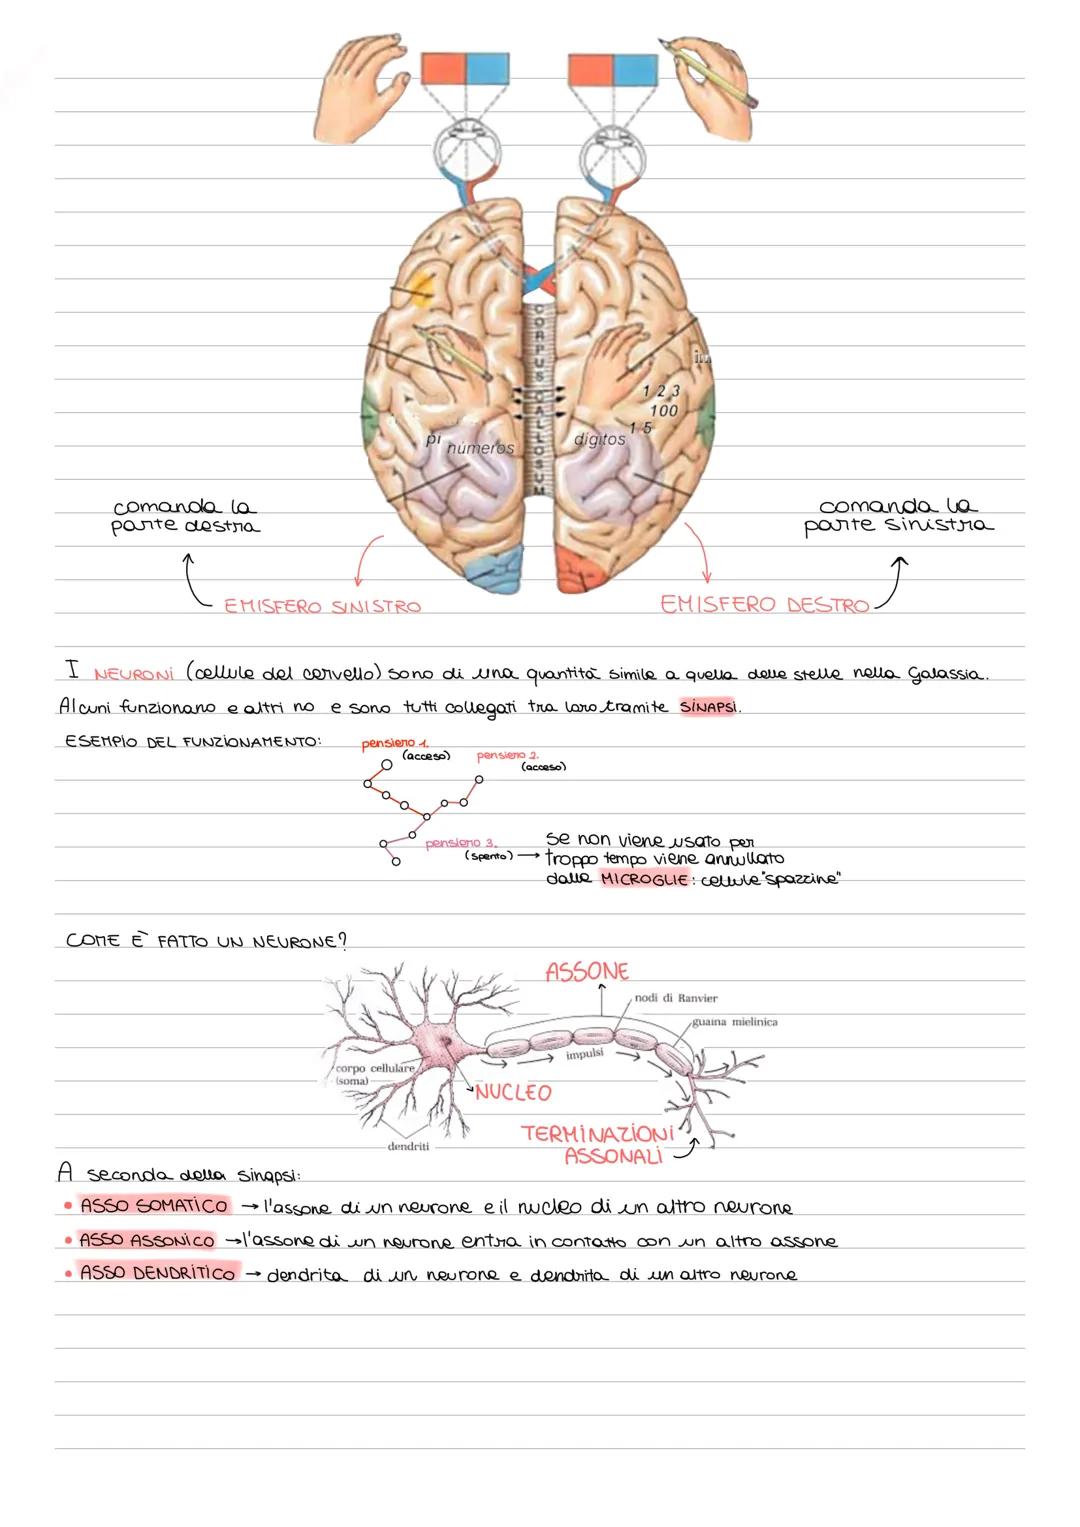 CORPUS CALLOSUM
1 2 3
100
1 5
pi números
dígitos
comanda la
parte destra
comanda la
parte sinistra
EMISFERO SINISTRO
EMISFERO DESTRO
I NEURONI (cellule del cervello) sono di una quantità simile a quella delle stelle nella Galassia.
Alcuni funzionano e altri no e sono tutti collegati tra loro tramite SINAPSI.
ESEMPIO DEL FUNZIONAMENTO:
pensiero 1.
(acceso)
pensiero 2.
(acceso)
pensiero 3.
(spento)
se non viene usato per
troppo tempo viene annullato
dalle MICROGLIE: cellule "spazzine"
COME È FATTO UN NEURONE?
ASSONE
nodi di Ranvier
guaina mielinica
impulsi
corpo cellulare
(soma)
NUCLEO
dendriti
TERMINAZIONI
ASSONALI
A seconda della sinapsi:
• ASSO SOMATICO → l'assone di un neurone e il nucleo di un altro neurone
• ASSO ASSONICO → l'assone di un neurone entra in contatto con un altro assone
• ASSO DENDRITICO → dendrita di un neurone e dendrita di un altro neurone